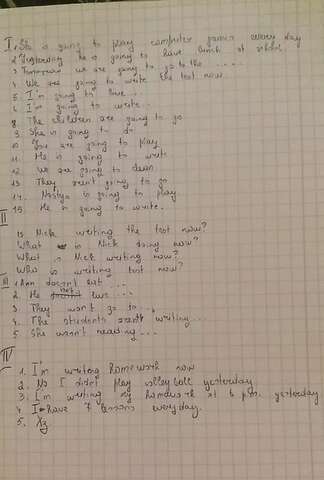 I. She is going to play computer games every day
2 Yesterday he is going to have lunch at school.
3 Tomorrow we are going to go to the ....
4. We are going to write the test now.
5. I'm going to have..
6 I'm going to write..
8 The children are going to go
9. She is going to do
10 You are going to play
11. He is going to write
12 We are going to clean
13 They aren't going to go
14. Nastya is going to play
15. He is going to write.
II
Is Nick writing the test now?
What is Nick doing now?
What is Nick writing now?
Who is writing test now?
III 1 Ann doesn't eat ...
2. He not live ...
3 They won't go to ...
4. The students aren't writing...
5. She wasn't reading...
IV
1. I'm writing homework now
2. No I didn't play volleyball yesterday
3. I'm writing my homework at 6 p.m. yesterday
4 I have 7 lessons everyday.
5. Xz